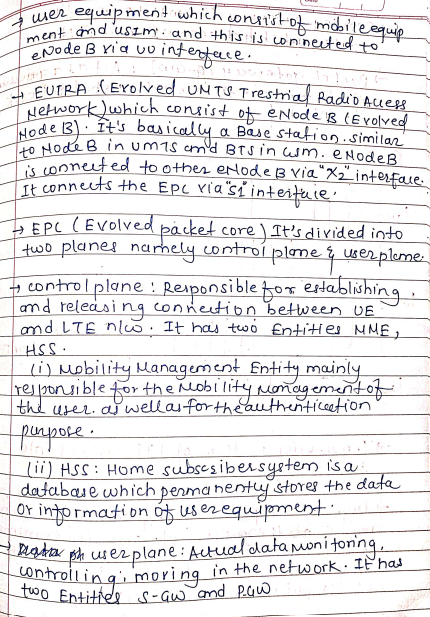 → user equipment which consist of mobile equip
ment and usim. and this is connected to
eNode B via uu interface.
→ EUTRA (Evolved UMTS Trestrial Radio Access
Network) which consist of eNode B (Evolved
Node B). It's basically a Base station. similar
to Node B in UMTS and BTS in GSM. eNodeB
is connected to other eNode B via "X2" interface.
It connects the EPC via "S1" interface.
→ EPC (Evolved packet core) It's divided into
two planes namely control plane & user plane.
→ control plane : Responsible for establishing
and releasing connection between UE
and LTE n/w. It has two Entities MME,
HSS.
(i) Mobility Management Entity mainly
responsible for the Mobility management of
the user. as well as for the authentication
purpose.
(ii) HSS : Home subscsiber system is a
database which permanently stores the data
or information of user equipment.
→ user plane : Actual data monitoring,
controlling, moving in the network. It has
two Entities S-GW and P.GW